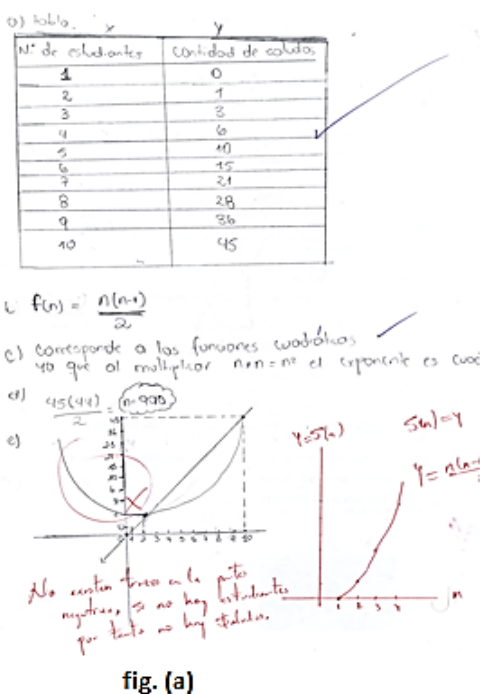 a) tabla. x y
N° de estudiantes Cantidad de saludos
1 0
2 1
3 3
4 6
5 10
6 15
7 21
8 28
9 36
10 45
f(n) = n(n-1)/2
c) corresponde a las funciones cuadráticas
ya que al multiplicar n*n=n² el exponente es
d) 45(44)/2 = n=990
e)
y=S(n) S(n)=y
No existen trazos en la parte
negativa, si no hay estudiantes
por tanto no hay saludos.
fig. (a)